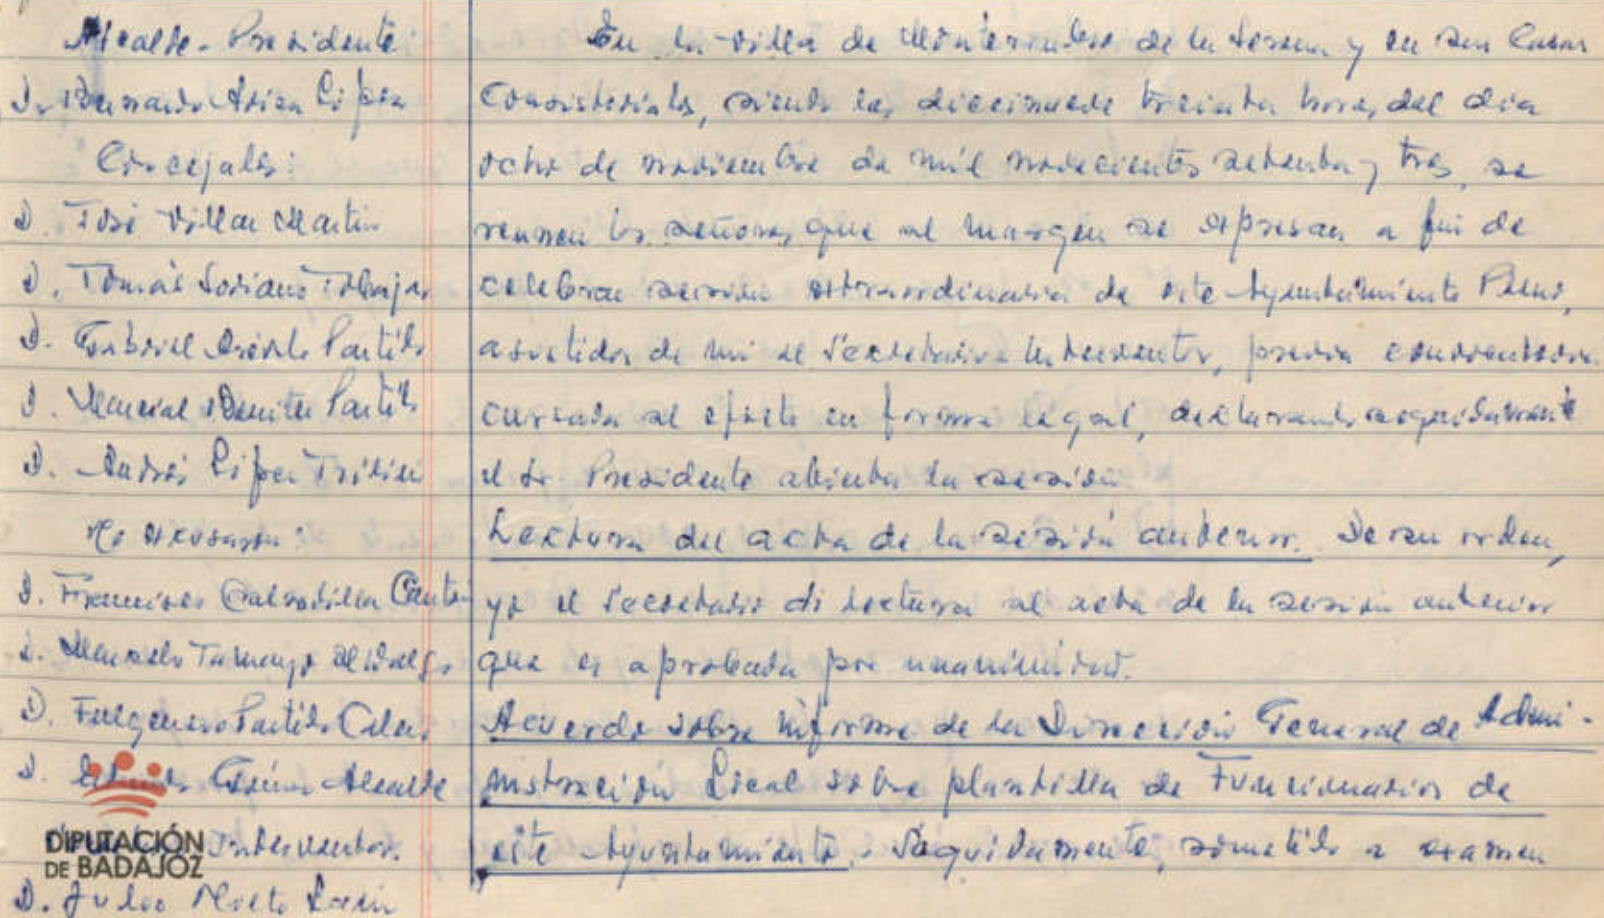 Alcalde-Presidente:
D. Bernardo Ariza López
Concejales:
D. José Villar Martín
D. Tomás Soriano Tobajas
D. Gabriel Partido
D. Marcial Benítez Partido
D. Andrés López
No excusaron:
D. Francisco Calzadilla
D. Tamayo Hidalgo
D. Fulgencio Partido
D. Alcalde
Interventor.
D. Julio Nieto
En la villa de Monterrubio de la Serena y en sus Casas
Consistoriales, siendo las diecinueve treinta horas, del dia
ocho de noviembre de mil novecientos setenta y tres, se
reunen los señores, que al margen se expresan a fin de
celebrar sesión extraordinaria de este Ayuntamiento Pleno,
asistidos de mi el Secretario-Interventor, previa convocatoria
cursada al efecto en forma legal, declarando seguidamente
el Sr. Presidente abierta la sesión.
Lectura del acta de la sesión anterior. De su orden,
yo el Secretario di lectura al acta de la sesión anterior
que es aprobada por unanimidad.
Acuerdo sobre informe de la Dirección General de Admi-
nistración Local sobre plantilla de Funcionarios de
este Ayuntamiento. Seguidamente, sometido a examen
DIPUTACIÓN
DE BADAJOZ